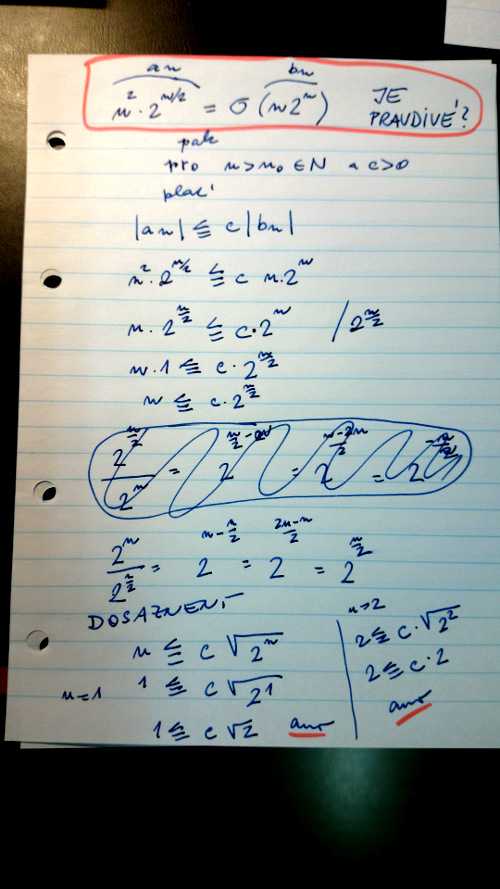 aₙ bₙ
n²·2^(n/2) = O(n2ⁿ) JE PRAVDIVÉ?
pak
pro n>n₀∈N a c>0
platí
|aₙ| ≦ c|bₙ|
n²·2^(n/2) ≦ c n·2ⁿ
n·2^(n/2) ≦ c·2ⁿ /2^(n/2)
n·1 ≦ c·2^(n/2)
n ≦ c·2^(n/2)
2ⁿ/2^(n/2) = 2^(n-n/2) = 2^((2n-n)/2) = 2^(n/2)
DOSAZNENÍ
n ≦ c√2ⁿ
n=1 1 ≦ c√2¹
1 ≦ c√2 ano
n=2
2 ≦ c·√2²
2 ≦ c·2
ano